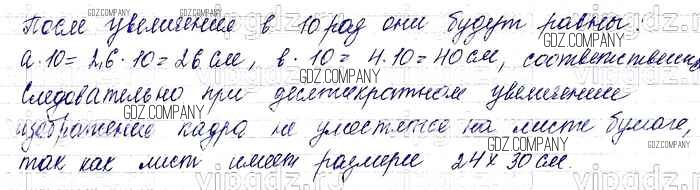 После увеличения в 10 раз они будут равны:
a·10 = 2,6·10 = 26 см, в·10 = 4·10 = 40 см, соответственно
Следовательно при десятикратном увеличение
изображение кадра не уместиться на листе бумаги,
так как лист имеет размеры 24 х 30 см.
GDZ.COMPANY
GDZ.COMPANY
GDZ.COMPANY
GDZ.COMPANY
GDZ.COMPANY
GDZ.COMPANY
vipgdz.ru